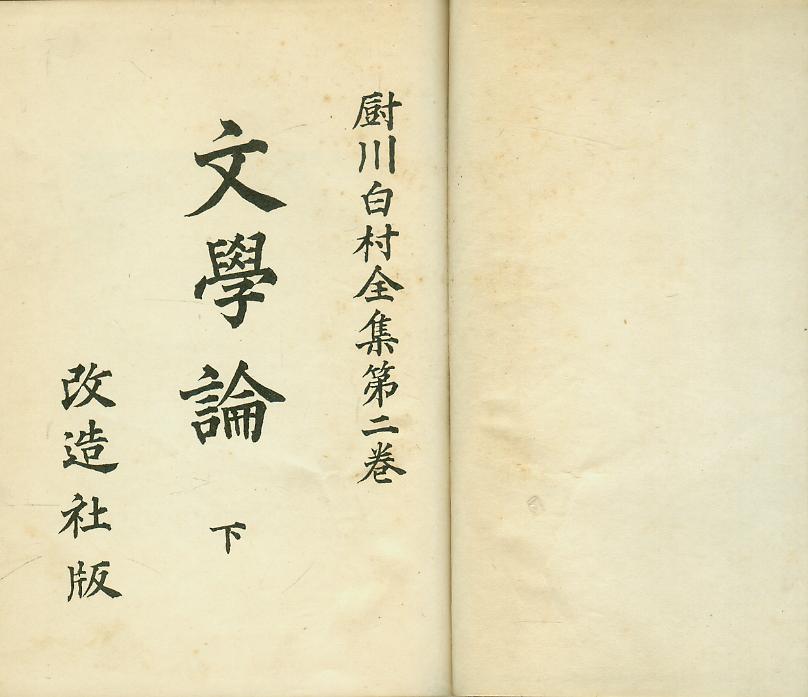 厨川白村全集第二卷
文學論 下
改造社版